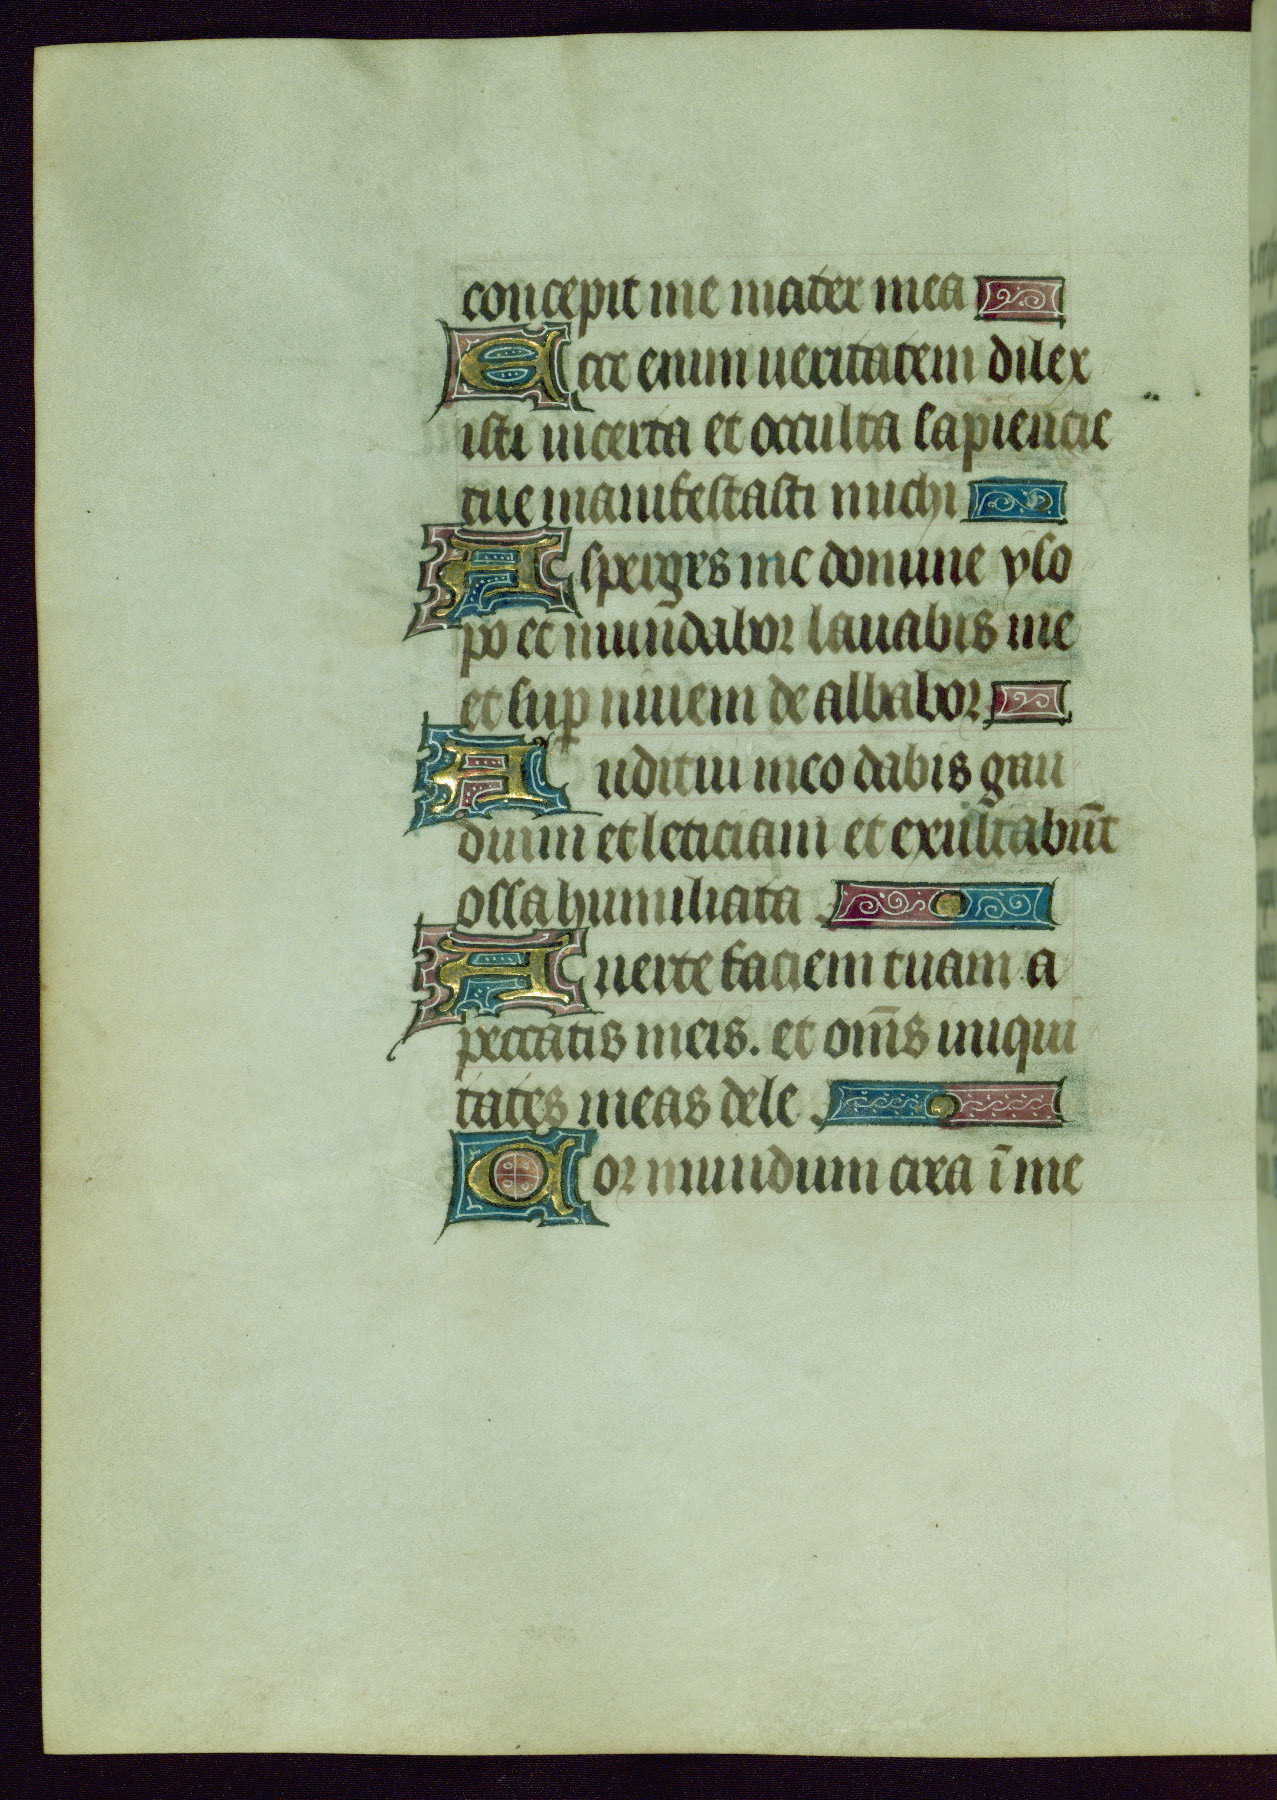 concepit me mater mea
Ecce enim ueritatem dilex
isti incerta et occulta sapiencie
tue manifestasti michi
Asperges me domine yso
po et mun̄dabor lauabis me
et sup̱ niuem de albabor
Auditui meo dabis gau
dium et leticiam et exul̄tabūt
ossa humiliata
Auerte faciem tuam a
peccatis meis. et om̄s iniqui
tates meas dele
Cor mundum crea ī me